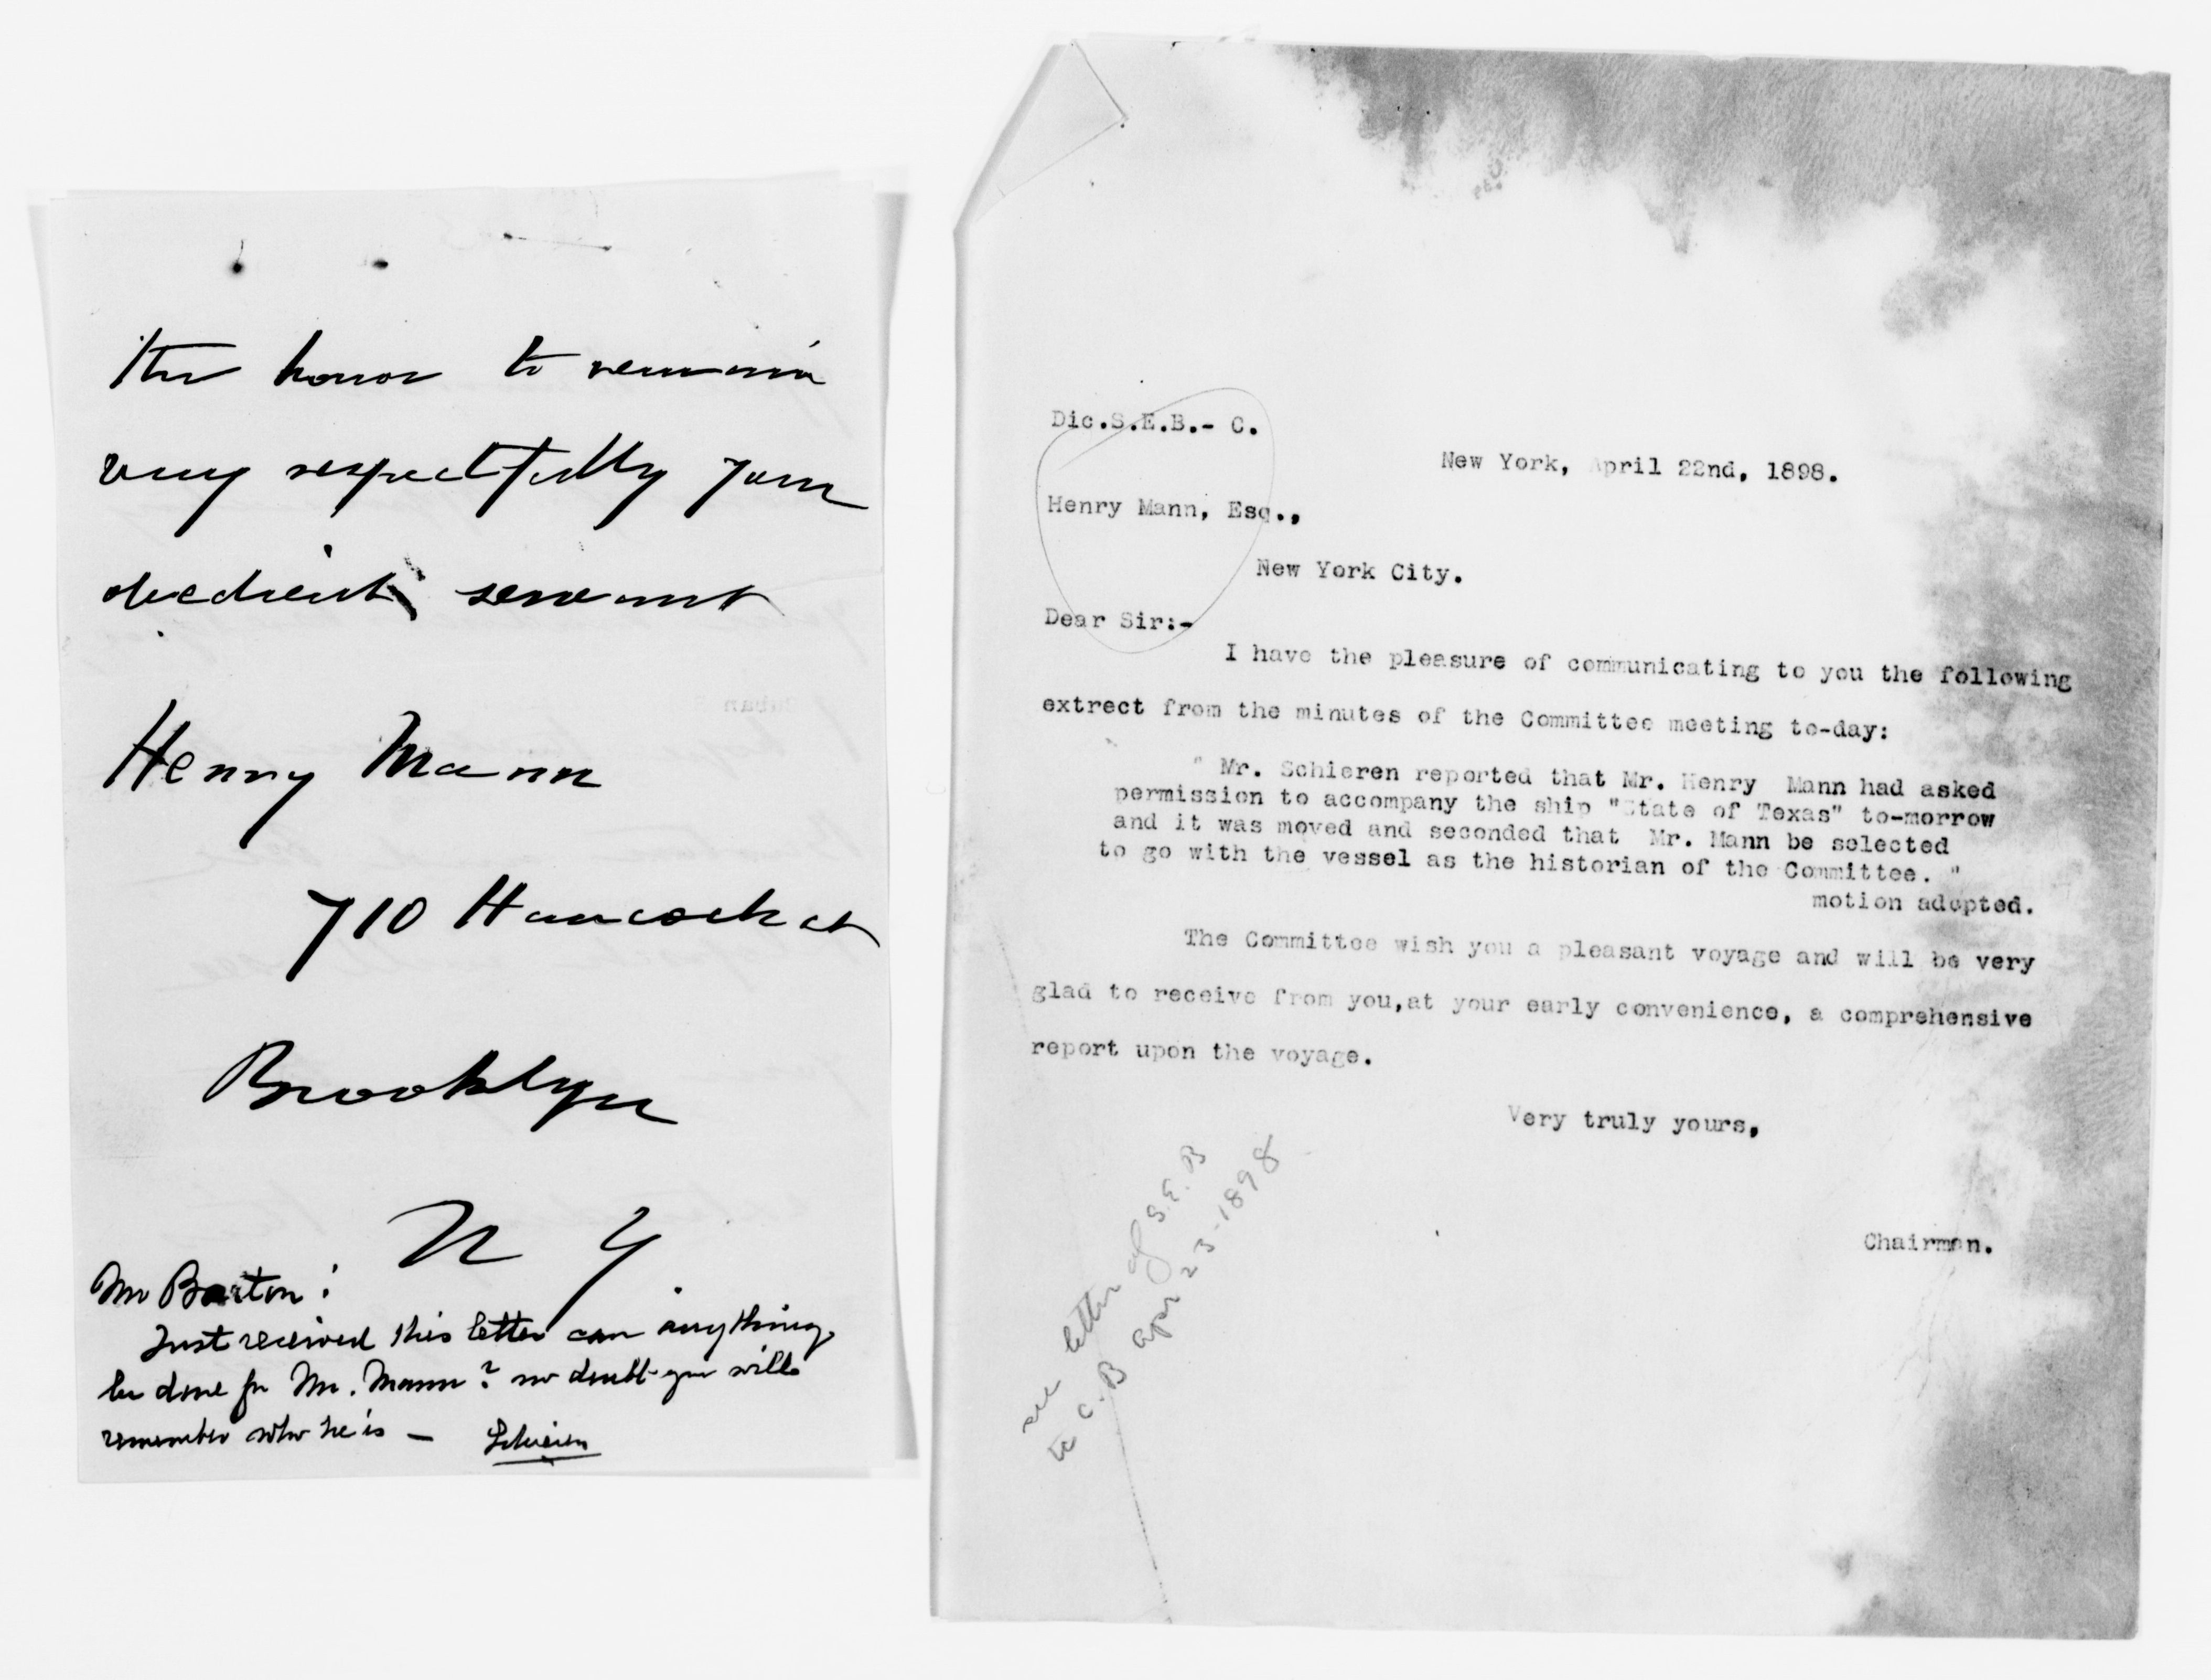 the honor to remain
very respectfully your
obedient servant
Henry Mann
710 Hancock st
Brooklyn
N Y
Mr Barton:
Just received this letter can anything
be done for Mr. Mann? no doubt you will
remember who he is —
Schieren
Dic.S.E.B.- C.
New York, April 22nd, 1898.
Henry Mann, Esq.,
New York City.
Dear Sir:-
I have the pleasure of communicating to you the following
extrect from the minutes of the Committee meeting to-day:
" Mr. Schieren reported that Mr. Henry Mann had asked
permission to accompany the ship "State of Texas" to-morrow
and it was moved and seconded that Mr. Mann be selected
to go with the vessel as the historian of the Committee. "
motion adopted.
The Committee wish you a pleasant voyage and will be very
glad to receive from you,at your early convenience, a comprehensive
report upon the voyage.
Very truly yours,
Chairman.
see letter of S.E.B
to C.B apr 23-1898